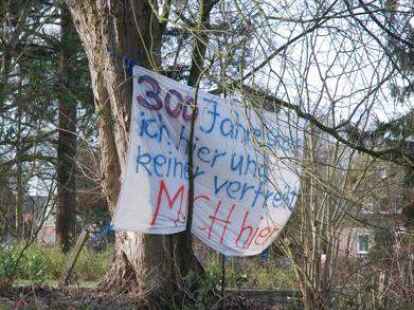 300 Jahre steh
ich hier und
keiner vertreibt
MICH hier